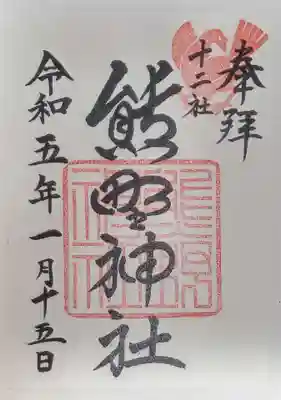 奉拝
十二社
熊野神社
令和五年一月十五日